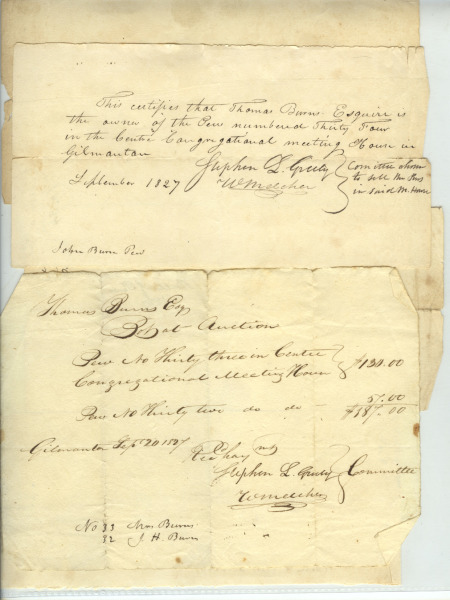 This certifies that Thomas Burns Esquire is
the owner of the Pew numbered Thirty Four
in the Centre Congregational meeting House in
Gilmanton
Stephen L. Greely
Wm
September 1827
Comittee chosen
to sell the Pews
in said M. House
John Burn Pew
Thomas Burns Esq
Bot at Auction
Pew No Thirty three in Centre
Congregational Meeting House
$130.00
Pew No Thirty two do do
57.00
$187.00
Gilmanton Sept 20 1827
Recd pay mt
Stephen L Greely
Wm
Committee
No 33 Mrs Burns
32 J. H. Burn